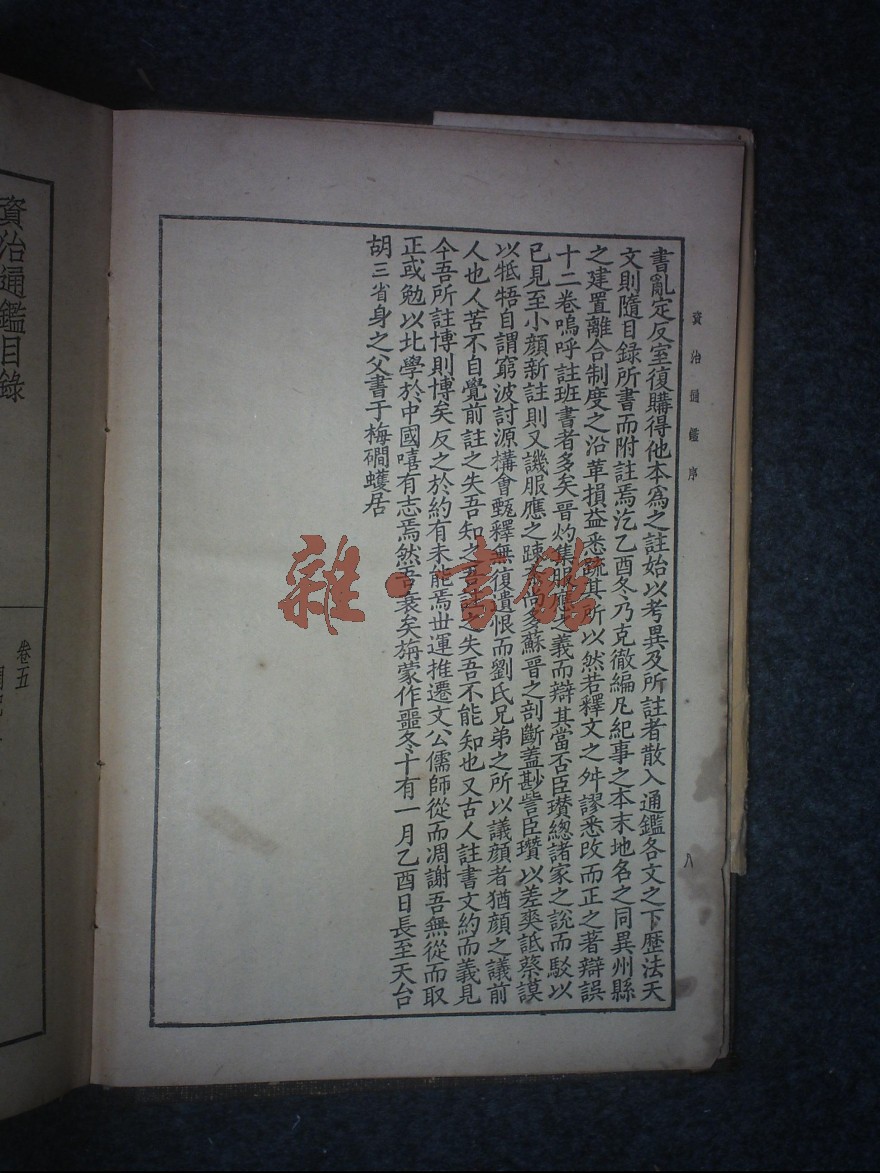 資治通鑑序
八
書亂定反室復購得他本爲之註始以考異及所註者散入通鑑各文之下歷法天
文則隨目錄所書而附註焉汔乙酉冬乃克徹編凡紀事之本末地名之同異州縣
之建置離合制度之沿革損益悉疏其所以然若釋文之舛謬悉改而正之著辯誤
十二卷嗚呼註班書者多矣晉灼集服應之義而辯其當否臣瓚總諸家之說而駁以
已見至小顏新註則又譏服應之疎尚多蘇晉之剖斷蓋尠訾臣瓚以差爽詆蔡謨
以牴牾自謂窮波討源構會甄釋無復遺恨而劉氏兄弟之所以議顏者猶顏之議前
人也人苦不自覺前註之失吾知之吾註之失吾不能知也又古人註書文約而義見
今吾所註博則博矣反之於約有未能焉世運推遷文公儒師從而凋謝吾無從而取
正或勉以北學於中國嘻有志焉然吾衰矣旃蒙作噩冬十有一月乙酉日長至天台
胡三省身之父書于梅磵蠖居
資治通鑑目錄
卷五
雜·書館